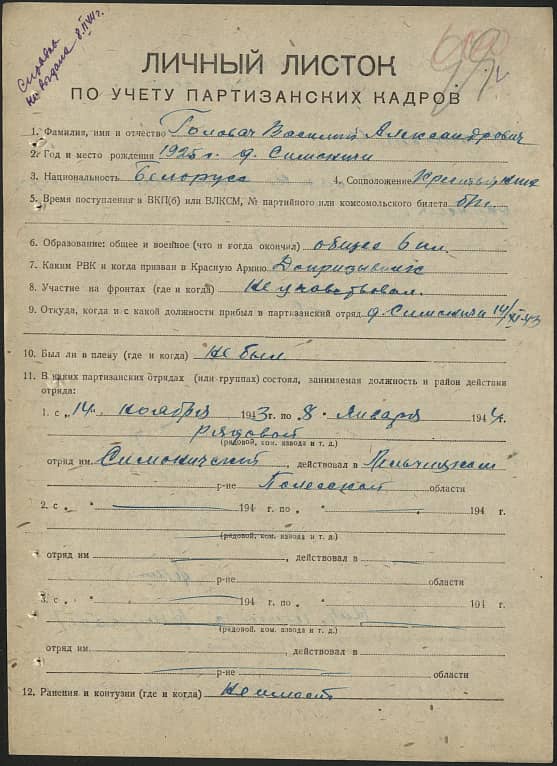 Справка
не выдана 8.II 44 г.
ЛИЧНЫЙ ЛИСТОК
ПО УЧЕТУ ПАРТИЗАНСКИХ КАДРОВ
1. Фамилия, имя и отчество Головач Василий Александрович
2. Год и место рождения 1925 г. д. Симоничи
3. Национальность Белорус 4. Соцположение
5. Время поступления в ВКП(б) или ВЛКСМ, № партийного или комсомольского билета б/п.
6. Образование: общее и военное (что и когда окончил) общее 6 кл.
7. Каким РВК и когда призван в Красную Армию Допризывник
8. Участие на фронтах (где и когда) Не участвовал.
9. Откуда, когда и с какой должности прибыл в партизанский отряд д. Симоничи 14/XI 43
10. Был ли в плену (где и когда) Не был
11. В каких партизанских отрядах (или группах) состоял, занимаемая должность и район действия
отряда:
1. с „ 14 " ноября 1943 г. по „ 8 " января 1944 г.
рядовой
(рядовой, ком. взвода и т. д.)
отряд им. Симоничский, действовал в Лельчицком
р-не Полесской области
2. с „ " 194 г. по „ " 194 г.
(рядовой, ком. взвода и т. д.)
отряд им. , действовал в
р-не области
3. с „ " 194 г. по „ " 194 г.
(рядовой, ком. взвода и т. д.)
отряд им. , действовал в
р-не области
12. Ранения и контузии (где и когда) Не имеет